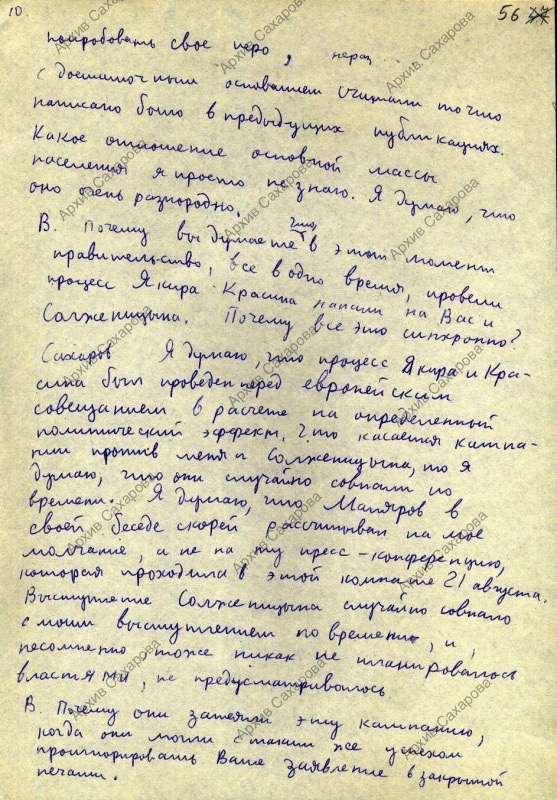 10.
56
попробовать свое перо,
с достаточным основанием считали то что
написано было в предыдущих публикациях.
Какое отношение основной массы
населения я просто не знаю. Я думаю, что
оно очень разнородно.
В. Почему вы думаете что, в этот момент
правительство, все в одно время, провели
процесс Якира Красина напали на Вас и
Солженицына. Почему все это синхронно?
Сахаров Я думаю, что процесс Якира и Кра-
сина был проведен перед европейским
совещанием в расчете на определенный
политический эффект. Что касается кампа-
нии против меня и Солженицына, то я
думаю, что они случайно совпали по
времени. Я думаю, что Маляров в
своей беседе скорей рассчитывал на мое
молчание, а не на ту пресс-конференцию,
которая проходила в этой комнате 21 августа.
Выступление Солженицына случайно совпало
с моим выступлением по времени, и,
несомненно, тоже никак не планировалось
властями, не предусматривалось.
В. Почему они затеяли эту кампанию,
когда они могли с таким же успехом
проигнорировать Ваше заявление в закрытой
печати.
Архив Сахарова